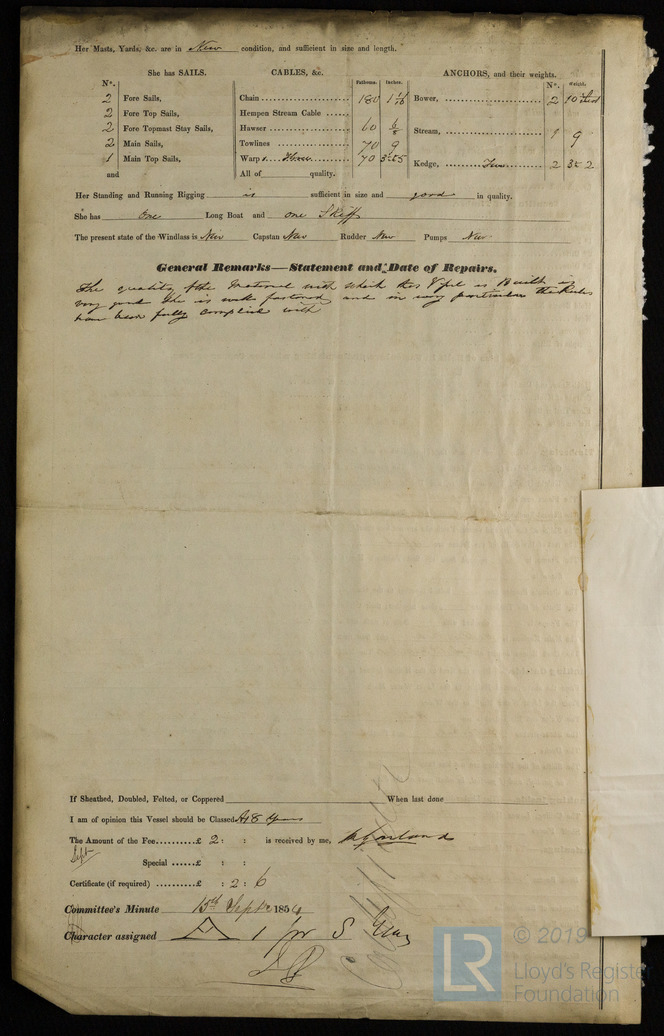 Her Masts, Yards, &c. are in New condition, and sufficient in size and length.
She has SAILS. CABLES, &c. ANCHORS, and their weights.
Nº. Fathoms. Inches. Nº. Weight.
2 Fore Sails, Chain 180 1 Bower, 2 10
2 Fore Top Sails, Hempen Stream Cable
2 Fore Topmast Stay Sails, Hawser 60 6 Stream, 1 9
2 Main Sails, Towlines 70 9
1 Main Top Sails, Warp 70 Kedge, Two 2
and All of quality.
Her Standing and Running Rigging is sufficient in size and good in quality.
She has One Long Boat and one Skiff
The present state of the Windlass is New Capstan New Rudder New Pumps New
General Remarks—Statement and Date of Repairs.
The quality of the Material with which this Vessel is Built is
very good She is well fastened and in every particular the Rules
have been fully complied with
If Sheathed, Doubled, Felted, or Coppered When last done
I am of opinion this Vessel should be Classed A1 8 Years
The Amount of the Fee £ 2 : : is received by me,
Sept
Special £ : :
Certificate (if required) £ : 2 : 6
Committee's Minute 15th Septr 185
Character assigned A 1 for 8 Years
© 2019
LR Lloyd's Register
Foundation